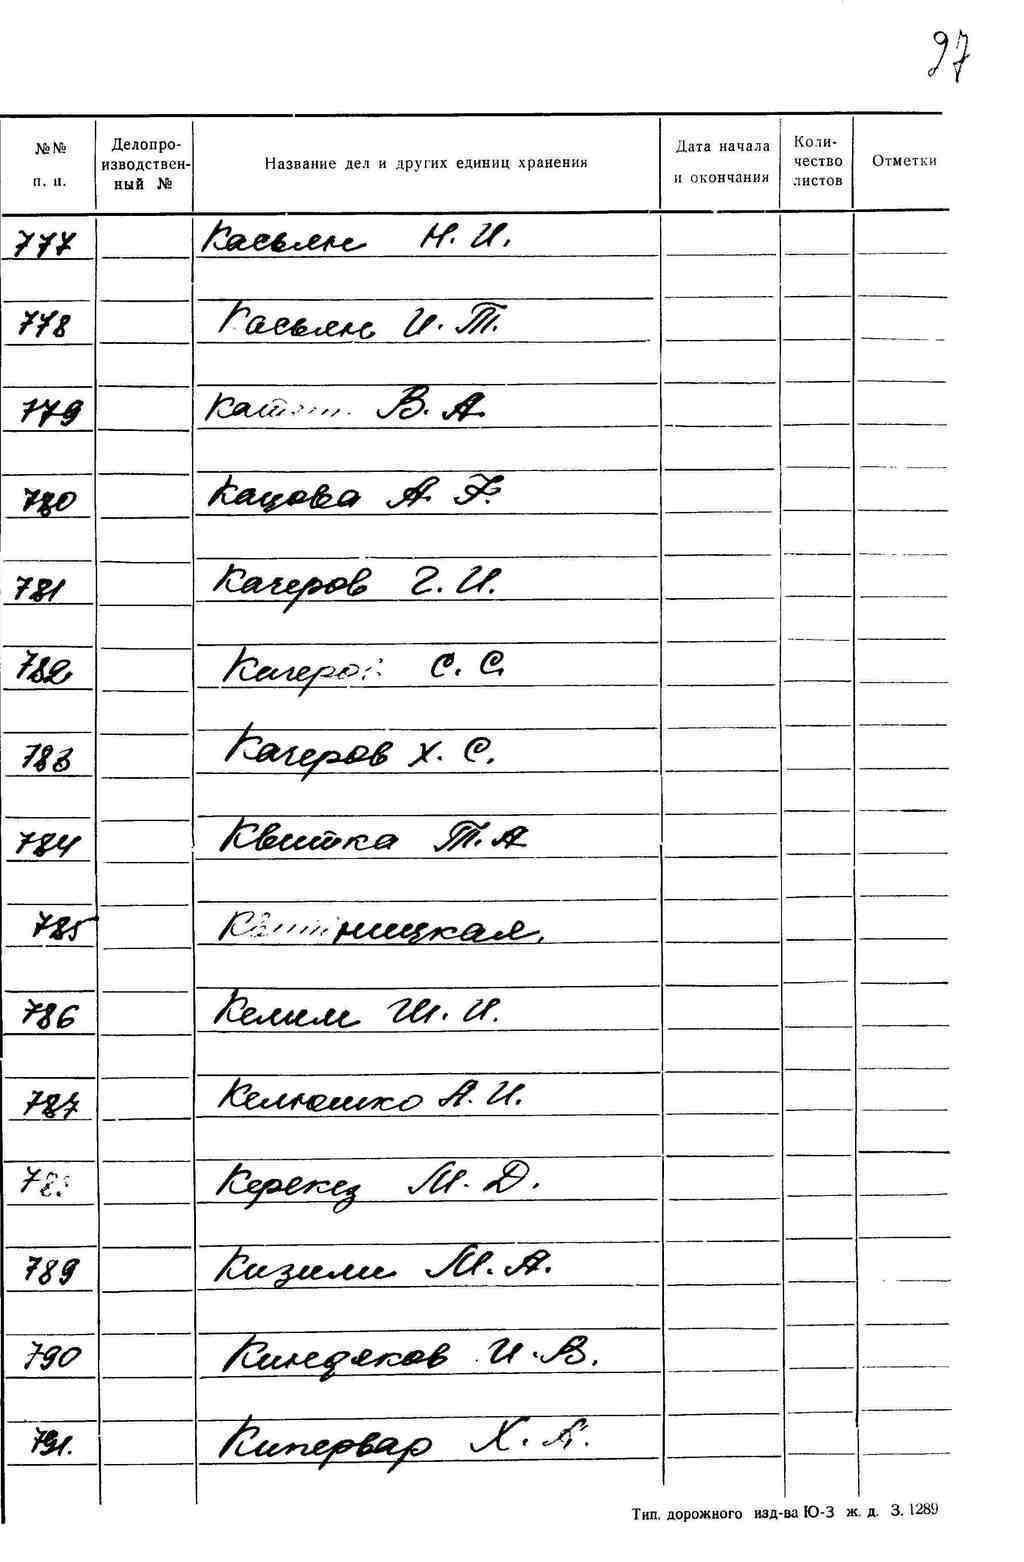 97
№№ п. п. Делопроизводственный № Название дел и других единиц хранения Дата начала и окончания Количество листов Отметки
777 Касьян Н. И.
778 Касьян И. Т.
779 В. А.
780 Кацова А.
781 Качеров Г. И.
782 Качеров С. С.
783 Качеров Х. С.
784 Квитка Т. А
785
786 Келим Ш. И.
787 Келюшко А. И.
788 Керекез М. Д.
789 Кизили М. А.
790 Киндяков И. В.
791. Кипервар Х. А.
Тип. дорожного изд-ва Ю-З ж. д. З. 1289